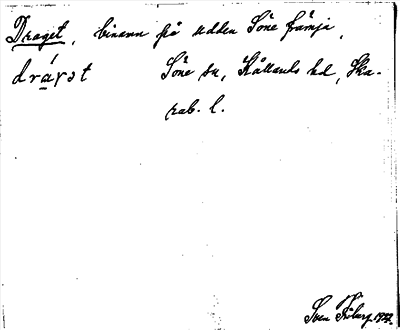 Draget, binamn på udden Söne främja,
drágət Söne sn, Kållands hd, Ska-
rab. l.
Sven 1922.